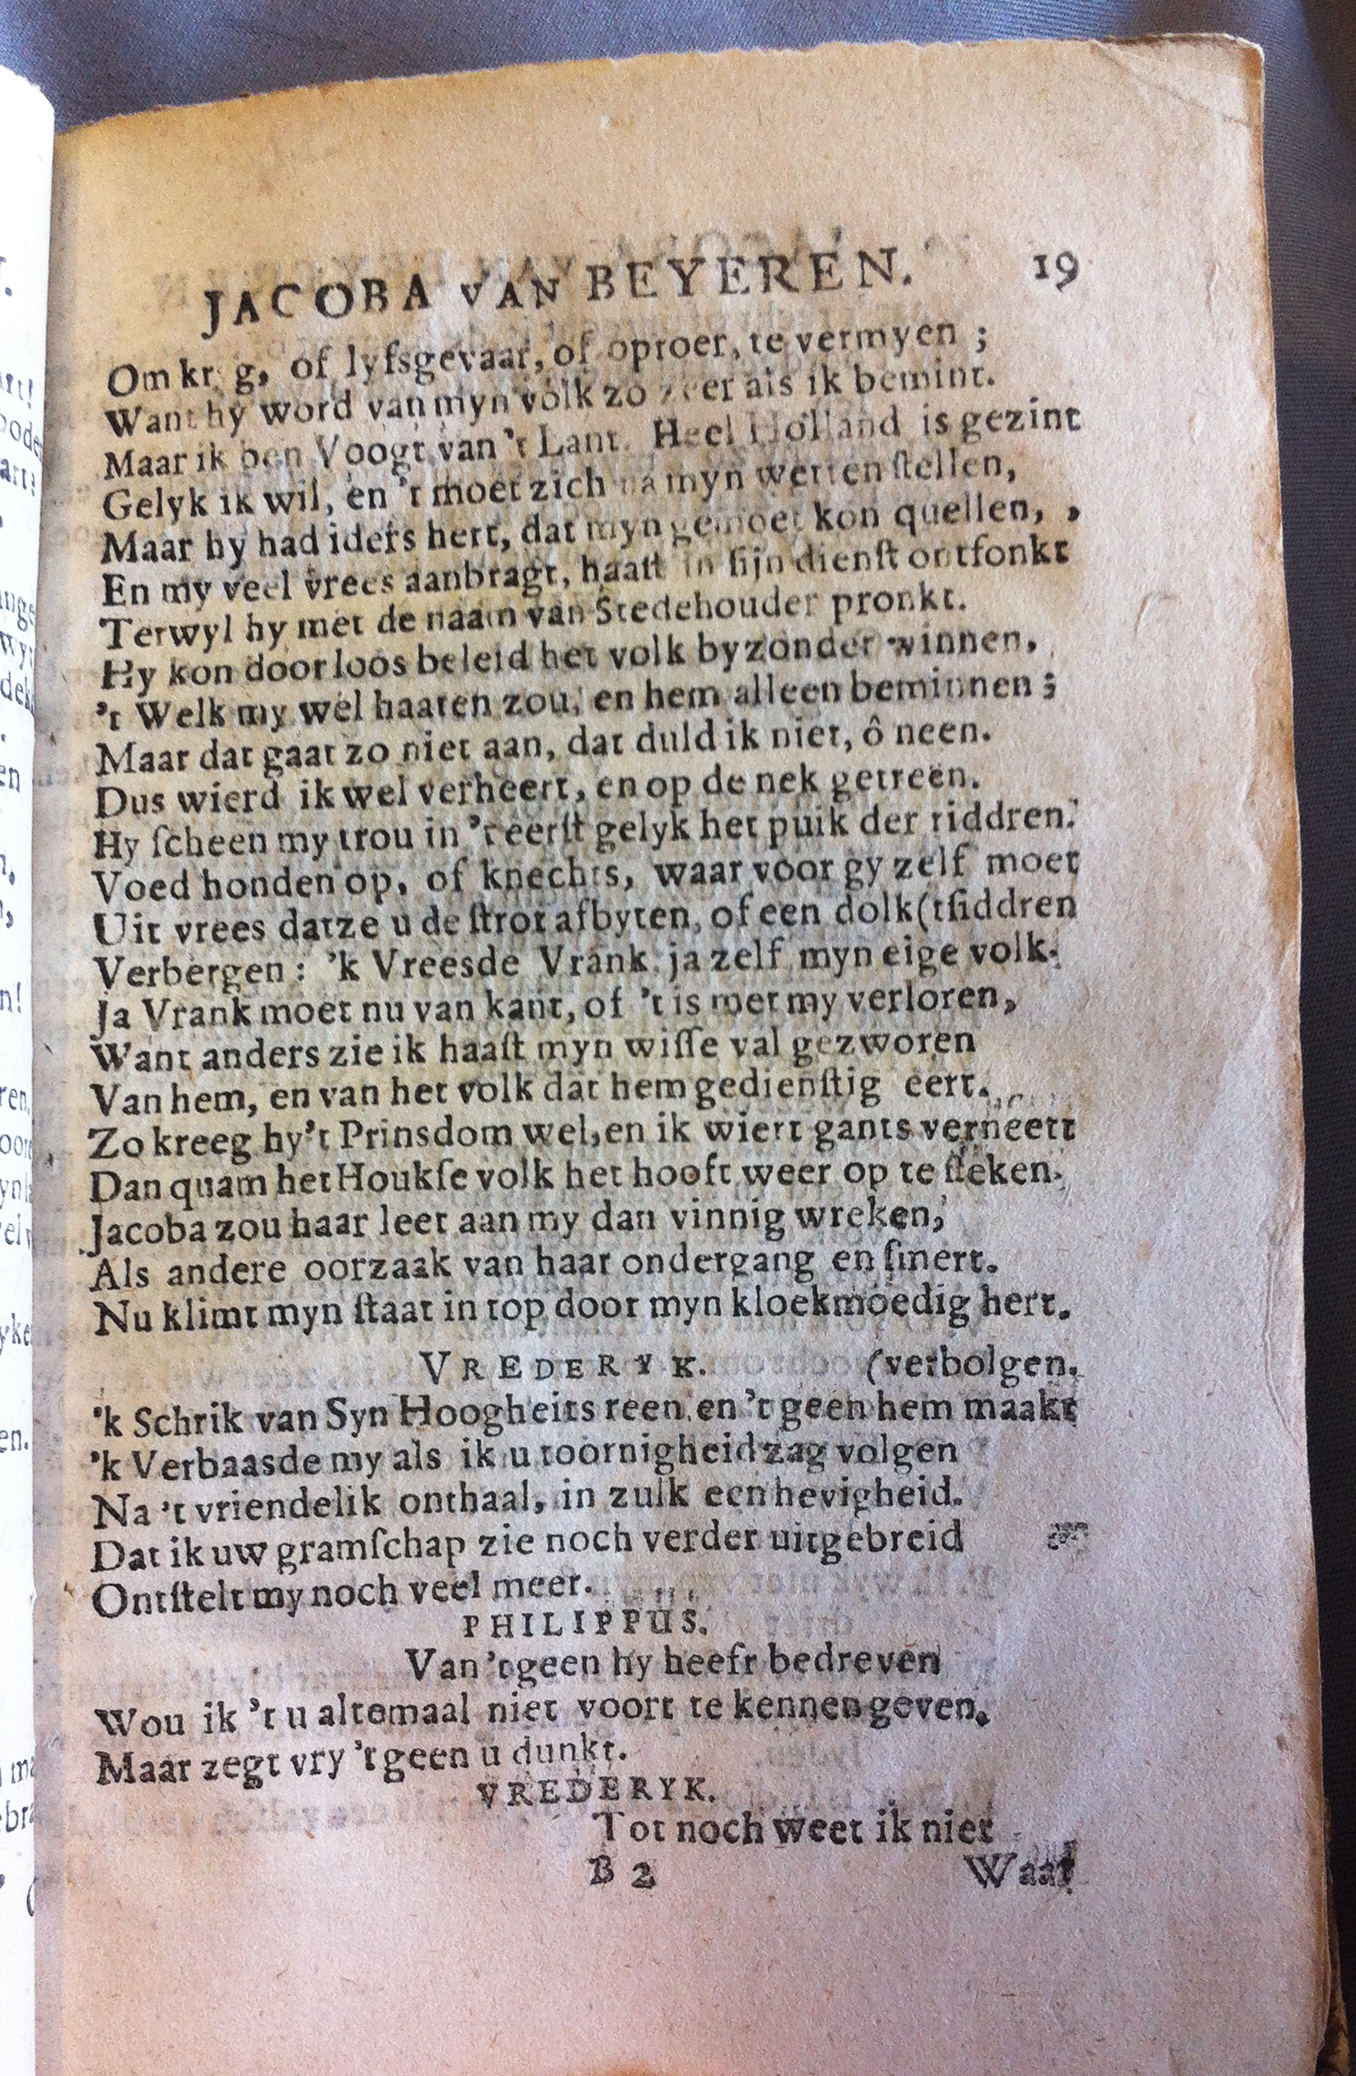 JACOBA VAN BEYEREN. 19
Om kr g, of lyfsgevaar, of oproer, te vermyen ;
Want hy word van myn volk zo zeer als ik bemint.
Maar ik ben Voogt van 't Lant. Heel Holland is gezint
Gelyk ik wil, en 't moet zich na myn wetten ſtellen,
Maar hy had iders hert, dat myn gemoet kon quellen,
En my veel vrees aanbragt, haaſt in ſijn dienſt ontfonkt
Terwyl hy met de naam van Stedehouder pronkt.
Hy kon door loos beleid het volk byzonder winnen,
't Welk my wel haaten zou, en hem alleen beminnen ;
Maar dat gaat zo niet aan, dat duld ik niet, ô neen.
Dus wierd ik wel verheert, en op de nek getreen.
Hy ſcheen my trou in 't eerſt gelyk het puik der riddren.
Voed honden op, of knechts, waar voor gy zelf moet
Uit vrees datze u de ſtrot afbyten, of een dolk (tſiddren
Verbergen : 'k Vreesde Vrank ja zelf myn eige volk.
Ja Vrank moet nu van kant, of 't is met my verloren,
Want anders zie ik haaſt myn wiſſe val gezworen
Van hem, en van het volk dat hem gedienſtig eert.
Zo kreeg hy 't Prinsdom wel, en ik wiert gants verneert
Dan quam het Houkſe volk het hooft weer op te ſteken.
Jacoba zou haar leet aan my dan vinnig wreken,
Als andere oorzaak van haar ondergang en ſmert.
Nu klimt myn ſtaat in top door myn kloekmoedig hert.
VREDERYK. (verbolgen.
'k Schrik van Syn Hoogheits reen en 't geen hem maakt
'k Verbaasde my als ik u toornigheid zag volgen
Na 't vriendelik onthaal, in zulk een hevigheid.
Dat ik uw gramſchap zie noch verder uitgebreid
Ontſtelt my noch veel meer.
PHILIPPUS.
Van 't geen hy heeft bedreven
Wou ik 't u altemaal niet voort te kennen geven.
Maar zegt vry 't geen u dunkt.
VREDERYK.
Tot noch weet ik niet
B 2 Waar